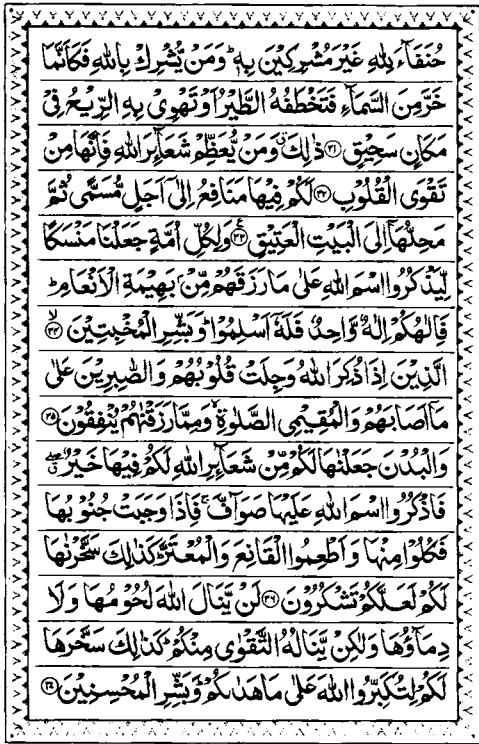 حُنَفَآءَ لِلّٰهِ غَيْرَ مُشْرِكِيْنَ بِهٖ ؕ وَمَنْ يُّشْرِكْ بِاللّٰهِ فَكَاَنَّمَا
خَرَّ مِنَ السَّمَآءِ فَتَخْطَفُهُ الطَّيْرُ اَوْ تَهْوِىْ بِهِ الرِّيْحُ فِىْ
مَكَانٍ سَحِيْقٍ ﴿۳۱﴾ ذٰلِكَ ۗ وَمَنْ يُّعَظِّمْ شَعَآئِرَ اللّٰهِ فَاِنَّهَا مِنْ
تَقْوَى الْقُلُوْبِ ﴿۳۲﴾ لَكُمْ فِيْهَا مَنَافِعُ اِلٰٓى اَجَلٍ مُّسَمًّى ثُمَّ
مَحِلُّهَاۤ اِلَى الْبَيْتِ الْعَتِيْقِ ﴿۳۳﴾ ع وَلِكُلِّ اُمَّةٍ جَعَلْنَا مَنْسَكًا
لِّيَذْكُرُوا اسْمَ اللّٰهِ عَلٰى مَا رَزَقَهُمْ مِّنْۢ بَهِيْمَةِ الْاَنْعَامِ ؕ
فَاِلٰهُكُمْ اِلٰهٌ وَّاحِدٌ فَلَهٗۤ اَسْلِمُوْا ؕ وَبَشِّرِ الْمُخْبِتِيْنَ ﴿۳۴﴾ ۙ
الَّذِيْنَ اِذَا ذُكِرَ اللّٰهُ وَجِلَتْ قُلُوْبُهُمْ وَالصّٰبِرِيْنَ عَلٰى
مَاۤ اَصَابَهُمْ وَالْمُقِيْمِى الصَّلٰوةِ ۙ وَمِمَّا رَزَقْنٰهُمْ يُنْفِقُوْنَ ﴿۳۵﴾
وَالْبُدْنَ جَعَلْنٰهَا لَكُمْ مِّنْ شَعَآئِرِ اللّٰهِ لَكُمْ فِيْهَا خَيْرٌ ۖ
فَاذْكُرُوا اسْمَ اللّٰهِ عَلَيْهَا صَوَآفَّ ۚ فَاِذَا وَجَبَتْ جُنُوْبُهَا
فَكُلُوْا مِنْهَا وَاَطْعِمُوا الْقَانِعَ وَالْمُعْتَرَّ ؕ كَذٰلِكَ سَخَّرْنٰهَا
لَكُمْ لَعَلَّكُمْ تَشْكُرُوْنَ ﴿۳۶﴾ لَنْ يَّنَالَ اللّٰهَ لُحُوْمُهَا وَلَا
دِمَآؤُهَا وَلٰكِنْ يَّنَالُهُ التَّقْوٰى مِنْكُمْ ؕ كَذٰلِكَ سَخَّرَهَا
لَكُمْ لِتُكَبِّرُوا اللّٰهَ عَلٰى مَا هَدٰىكُمْ ؕ وَبَشِّرِ الْمُحْسِنِيْنَ ﴿۳۷﴾